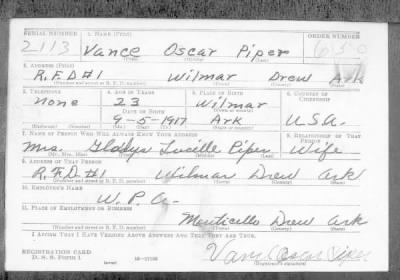 SERIAL NUMBER 1. NAME (Print) ORDER NUMBER
2113 Vance Oscar Piper 650
(First) (Middle) (Last)
2. ADDRESS (Print)
R.F.D #1 Wilmar Drew Ark
(Number and street or R. F. D. number) (Town) (County) (State)
3. TELEPHONE 4. AGE IN YEARS 5. PLACE OF BIRTH 6. COUNTRY OF CITIZENSHIP
None 23 Wilmar
DATE OF BIRTH (Town or county)
9-5-1917 Ark U.S.A.
(Exchange) (Number) (Mo.) (Day) (Yr.) (State or country)
7. NAME OF PERSON WHO WILL ALWAYS KNOW YOUR ADDRESS 8. RELATIONSHIP OF THAT PERSON
Mrs. Gladys Lucille Piper Wife
(Mr., Mrs., Miss) (First) (Middle) (Last)
9. ADDRESS OF THAT PERSON
R.F.D. #1 Wilmar Drew Ark
(Number and street or R. F. D. number) (Town) (County) (State)
10. EMPLOYER'S NAME
W.P.A.
11. PLACE OF EMPLOYMENT OR BUSINESS
Monticello Drew Ark
(Number and street or R. F. D. number) (Town) (County) (State)
I AFFIRM THAT I HAVE VERIFIED ABOVE ANSWERS AND THAT THEY ARE TRUE.
REGISTRATION CARD
D. S. S. Form 1 (over) 16-17105 Vance Oscar Piper
(Registrant's signature)